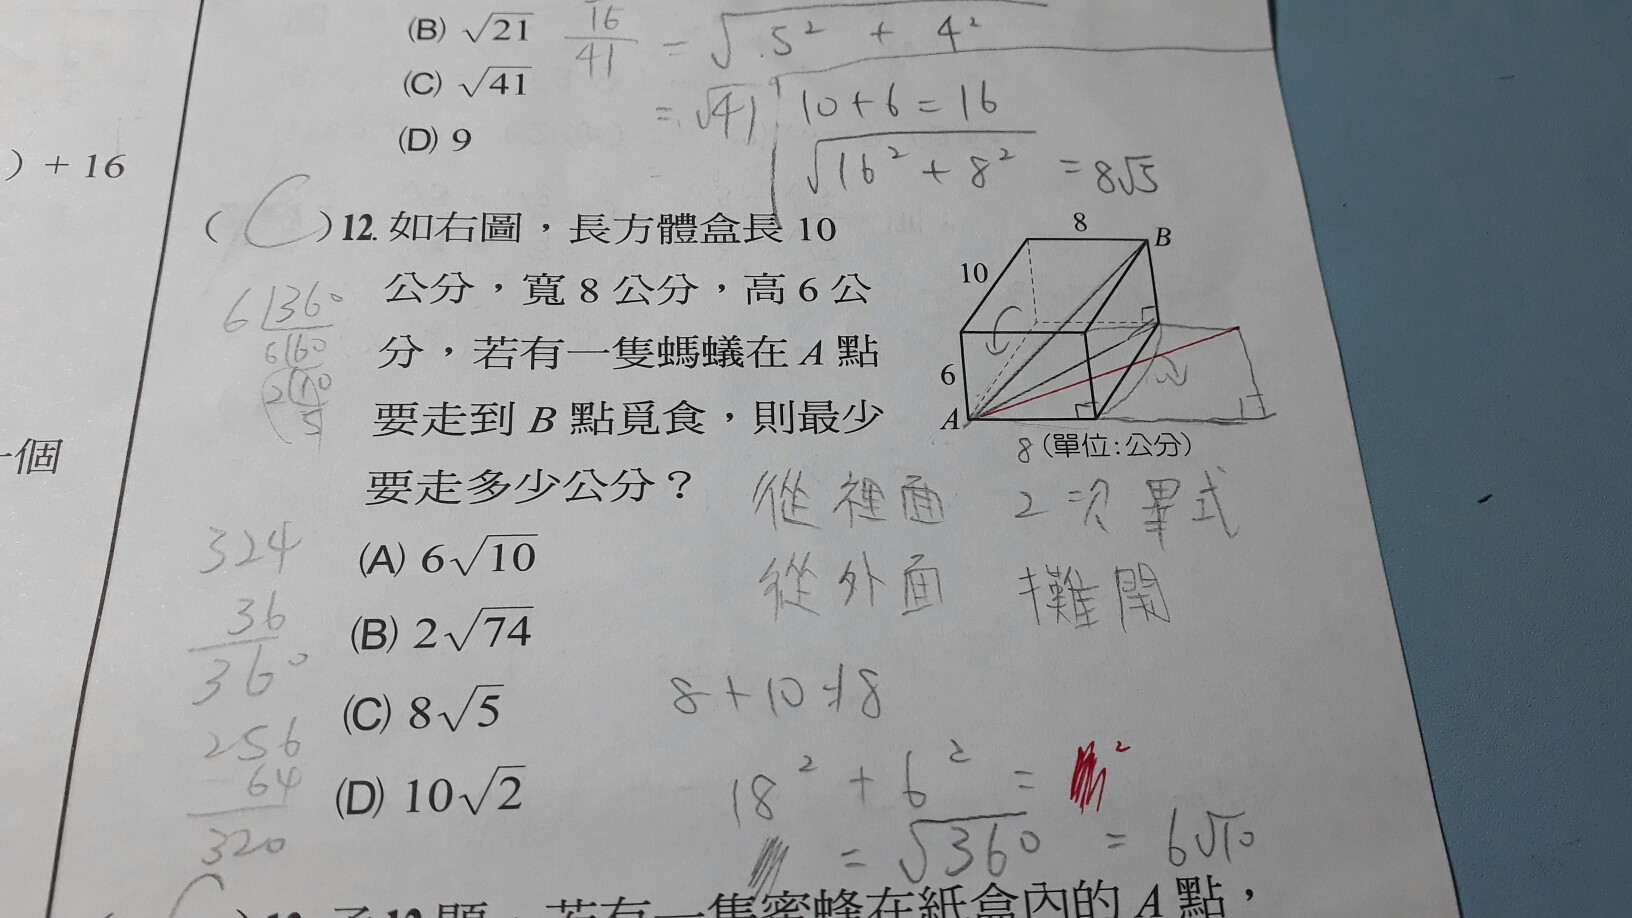 (B) √21
16
41
= √5² + 4²
(C) √41
= √41
10+6=16
(D) 9
√16² + 8² = 8√5
) + 16
( C )12. 如右圖，長方體盒長 10
公分，寬 8 公分，高 6 公
分，若有一隻螞蟻在 A 點
要走到 B 點覓食，則最少
要走多少公分？
8
B
10
6
A
8 (單位:公分)
6 360
6 60
2 10
5
一個
從裡面 2次畢式
從外面 攤開
324
36
360
256
64
320
(A) 6√10
(B) 2√74
(C) 8√5
(D) 10√2
8+10=18
18² + 6² = ²
= √360 = 6√10
若有一隻蜜蜂在紙盒內的 A 點，